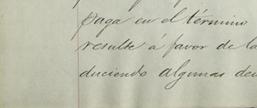 paga en el término
resulte á favor de la
duciendo algunas deu